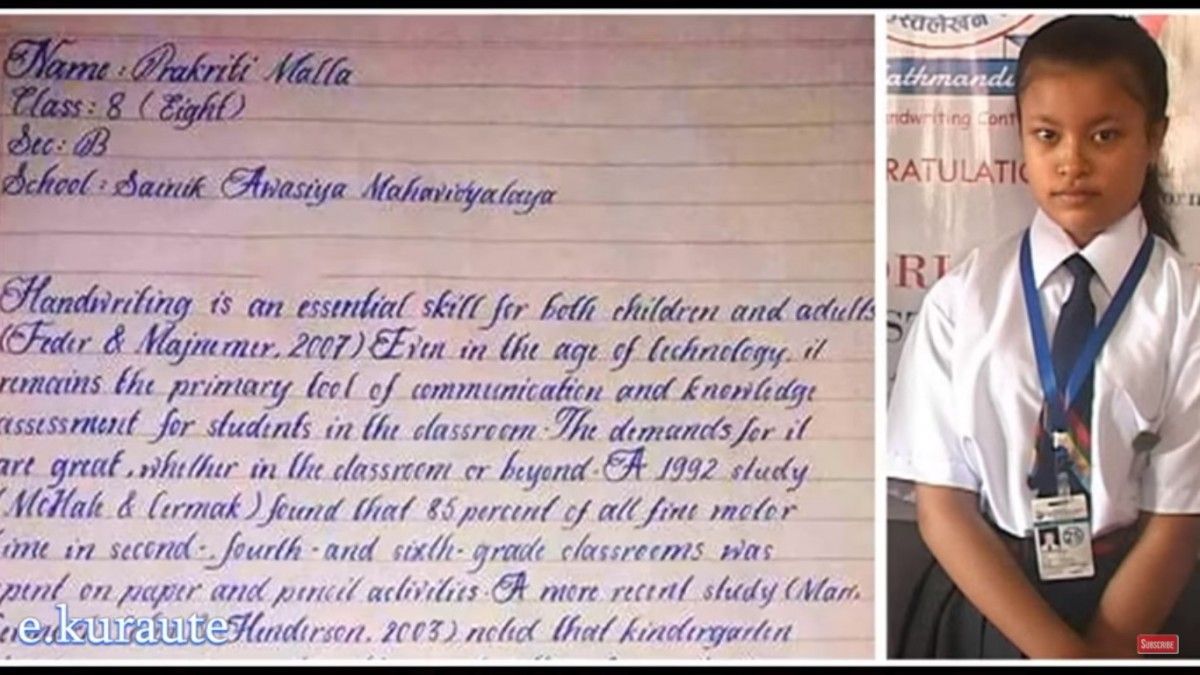 Name : Prakriti Malla
Class : 8 (Eight)
Sec : B
School : Sainik Awasiya Mahavidyalaya
Handwriting is an essential skill for both children and adults
(Feder & Majnemer, 2007) Even in the age of technology, it
remains the primary tool of communication and knowledge
assessment for students in the classroom. The demands for it
are great, whether in the classroom or beyond. A 1992 study
(McHale & Cermak) found that 85 percent of all fine motor
time in second-, fourth-and sixth-grade classrooms was
spent on paper and pencil activities. A more recent study (Marr,
Henderson, 2003) noted that kindergarten
e.kuraute
स्तलेखन
athmandu
ndwriting Cont
RATULATIO
ORL
ST
SUBSCRIBE